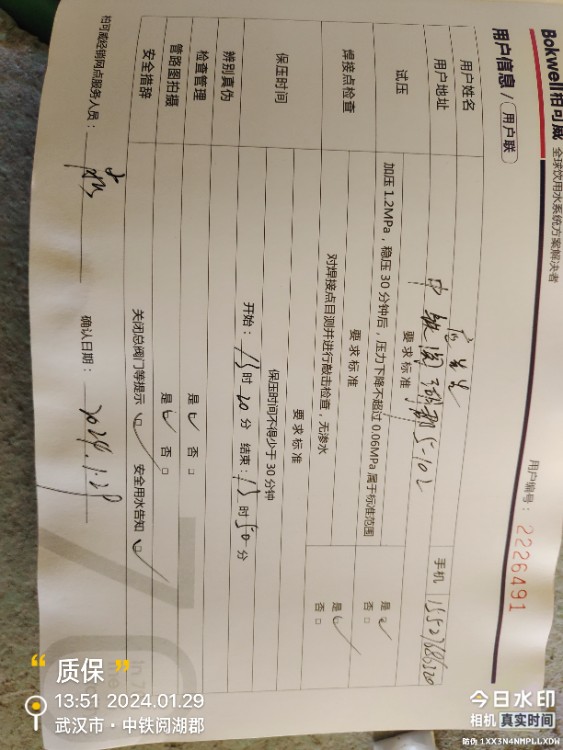 Bokwell柏可威 全球饮用水系统方案解决者
用户信息 / 用户联
用户编号： 2226491
用户姓名
用户地址 中铁阅湖郡5-102 手机
试压 要求标准
加压 1.2MPa，稳压 30 分钟后，压力下降不超过 0.06MPa 属于标准范围 是 否
焊接点检查 要求标准
对焊接点目测并进行敲击检查，无渗水 是 否
保压时间 要求标准
保压时间不得少于 30 分钟
开始：13时20分 结束：13时50分
辨别真伪 是 否
检查管理
管路图拍摄 是 否
安全措辞 关闭总阀门等提示 安全用水告知
柏可威经销网点服务人员： 确认日期：2024.1.29
“质保”
13:51 2024.01.29
武汉市·中铁阅湖郡
今日水印
相机 真实时间
防伪 1XX3N4NMPLLXDW